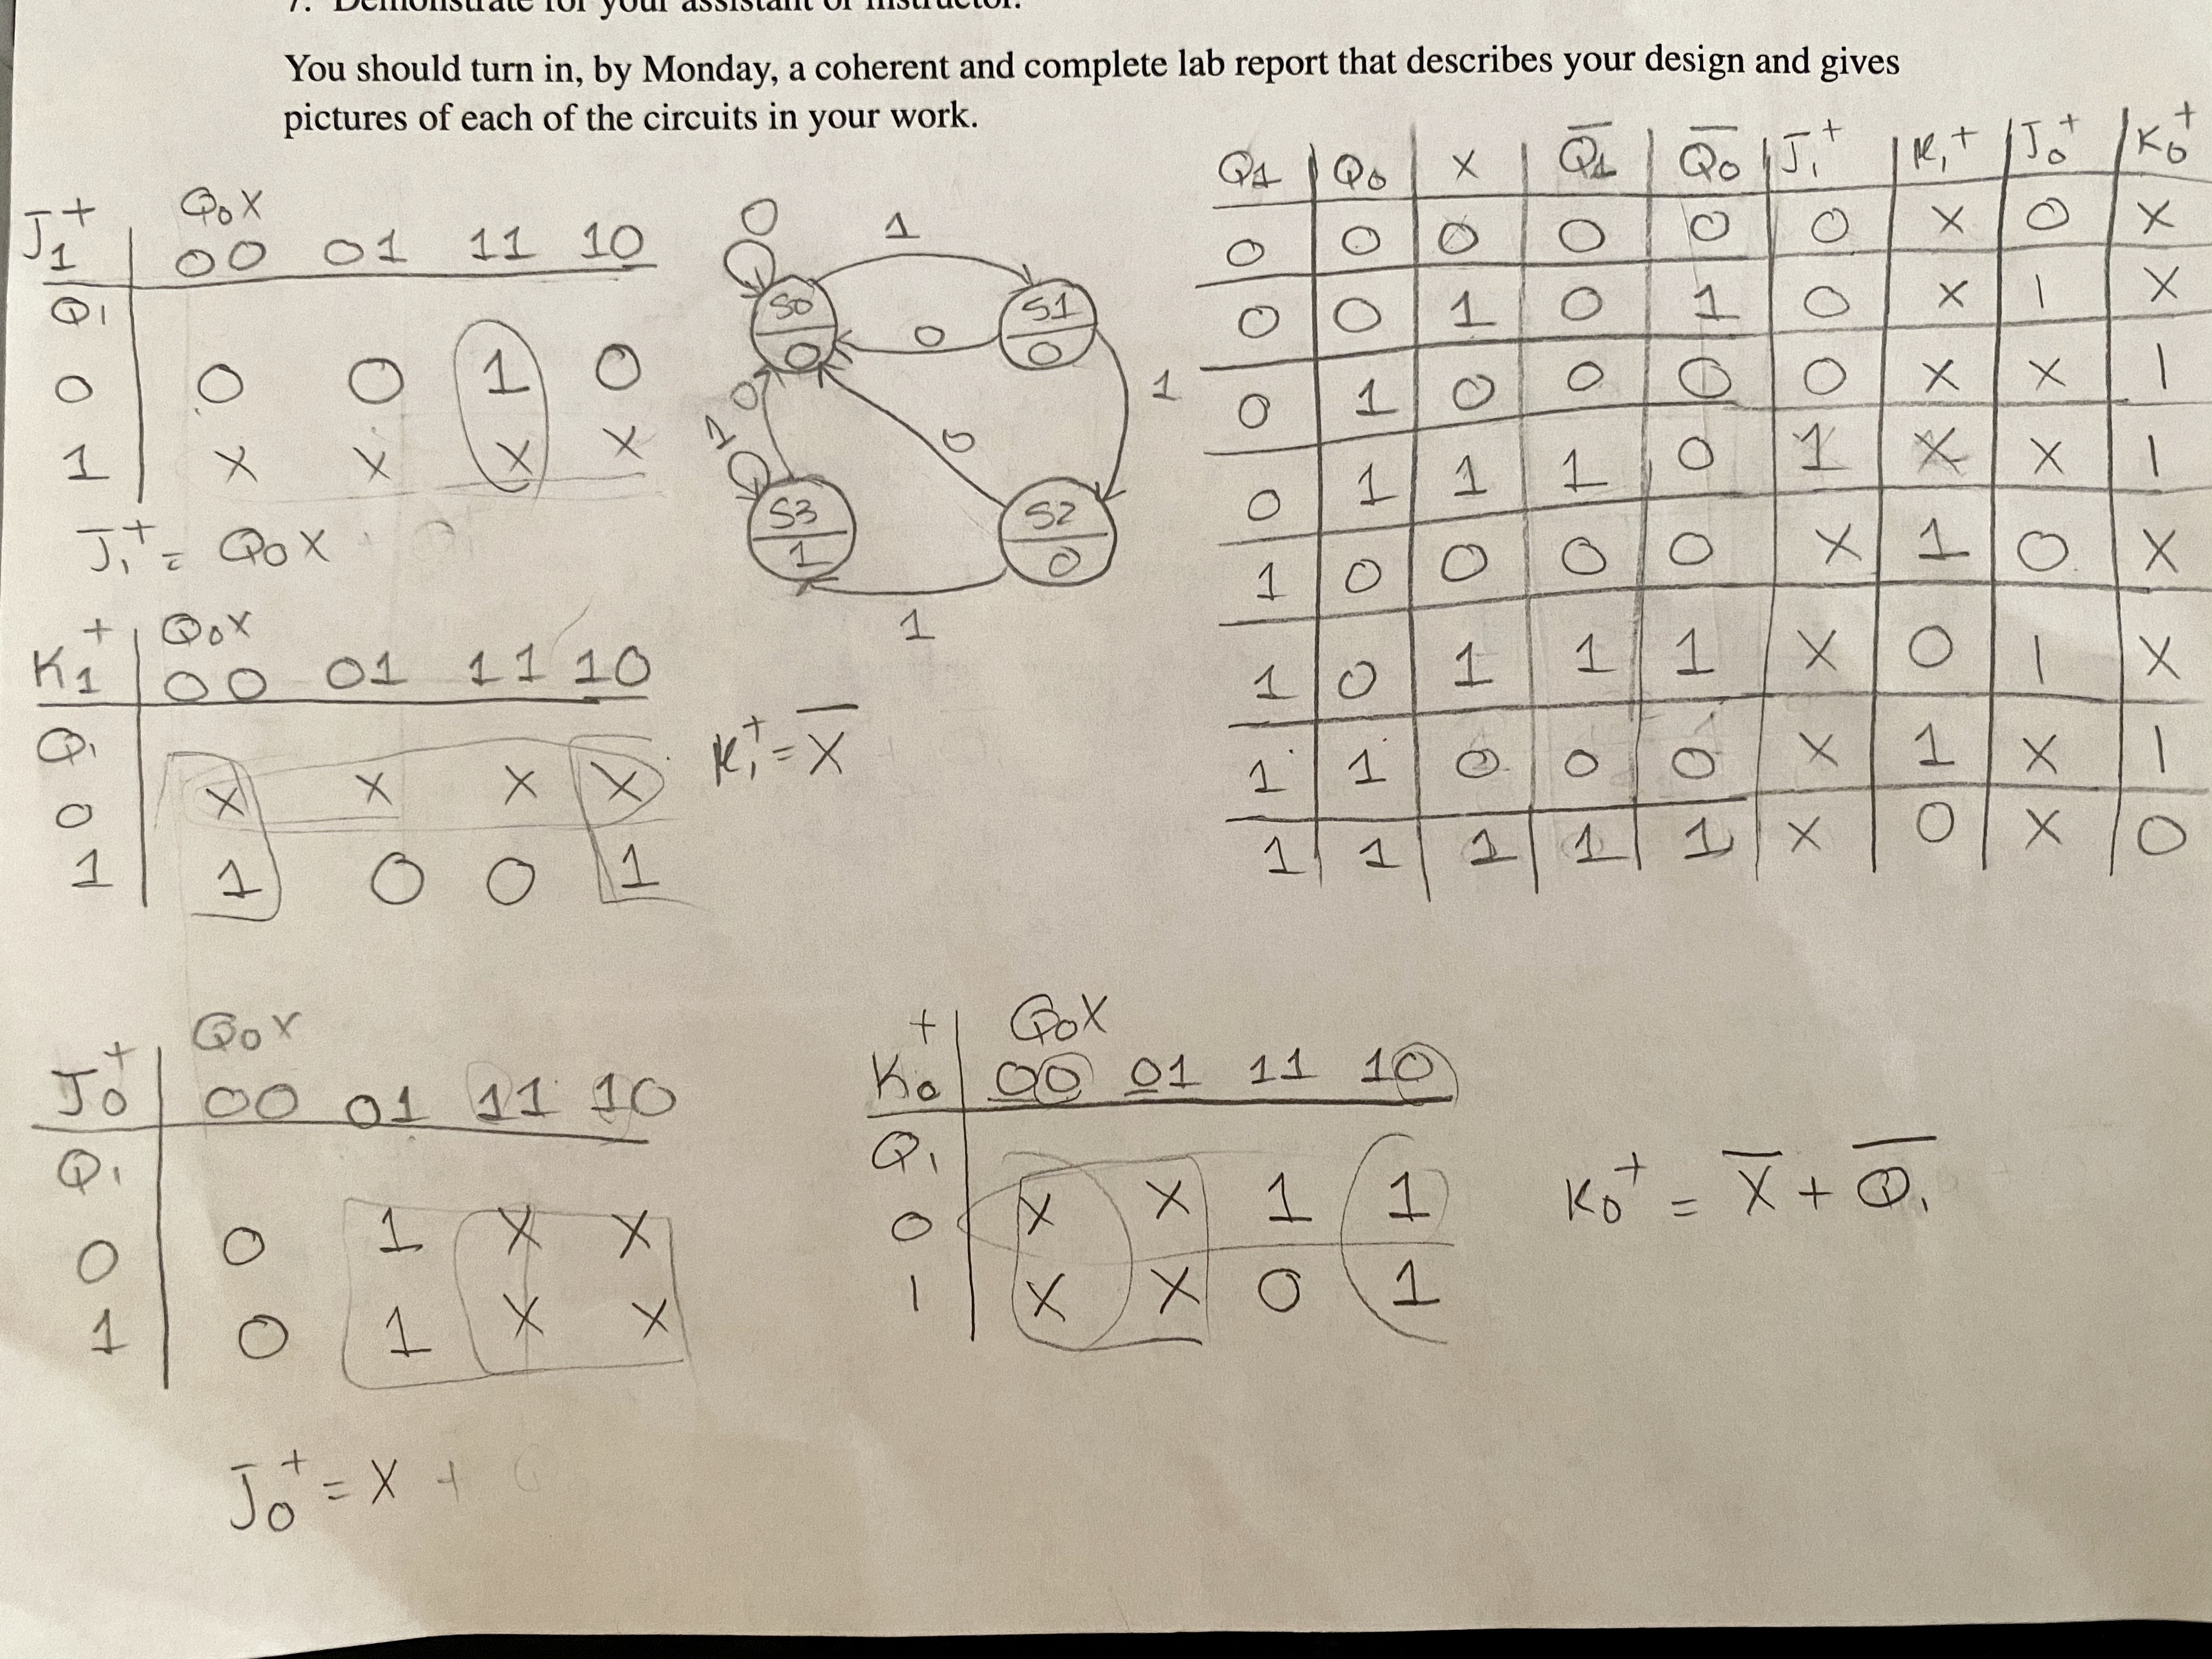 7. Demonstrate for your assistant or instructor.
You should turn in, by Monday, a coherent and complete lab report that describes your design and gives
pictures of each of the circuits in your work.
J₁⁺ Q₀X
00 01 11 10
Q₁
0 0 0 1 0
1 X X X X
J₁⁺ = Q₀X
K₁⁺ Q₀X
00 01 11 10
Q₁
0 X X X X
1 1 0 0 1
K₁⁺ = X̅
0 1
S0 S1
0 0 0
0 1
1 0
S3 S2
1 0
1
Q1 Q0 X Q̅1̅ Q̅0̅ J₁⁺ K₁⁺ J₀⁺ K₀⁺
0 0 0 0 0 0 X 0 X
0 0 1 0 1 0 X 1 X
0 1 0 0 0 0 X X 1
0 1 1 1 0 1 X X 1
1 0 0 0 0 X 1 0 X
1 0 1 1 1 X 0 1 X
1 1 0 0 0 X 1 X 1
1 1 1 1 1 X 0 X 0
J₀⁺ Q₀X
00 01 11 10
Q₁
0 0 1 X X
1 0 1 X X
J₀⁺ = X +
K₀⁺ Q₀X
00 01 11 10
Q₁
0 X X 1 1
1 X X 0 1
K₀⁺ = X̅ + Q̅₁